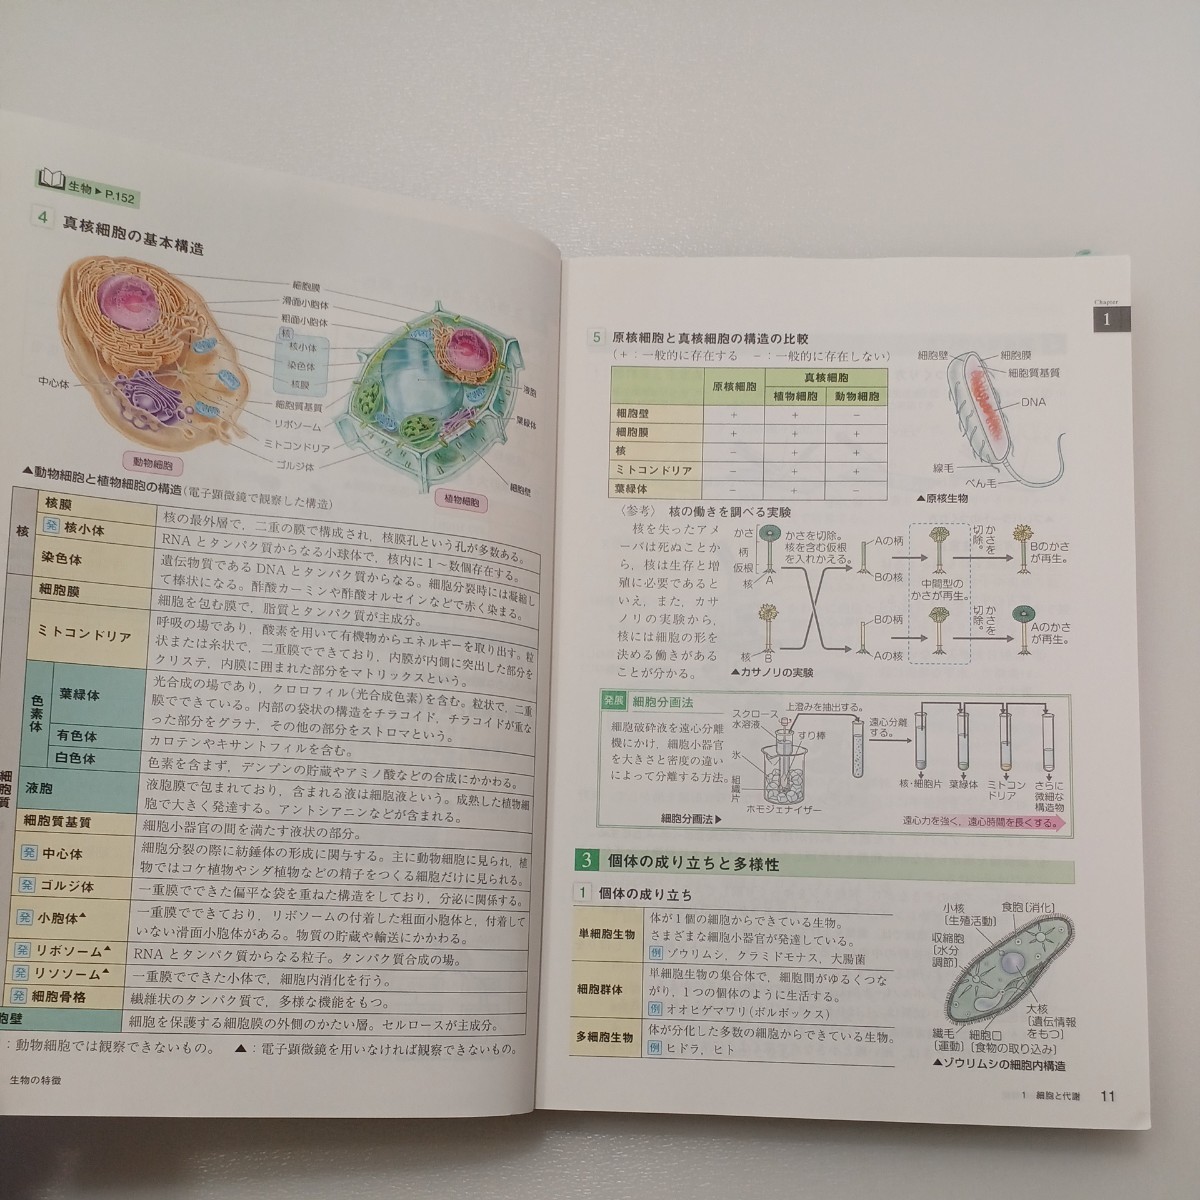 生物▶P.152
4 真核細胞の基本構造
細胞膜
滑面小胞体
粗面小胞体
核
核小体
染色体
核膜
中心体
細胞質基質
リボソーム
ミトコンドリア
ゴルジ体
液胞
葉緑体
細胞壁
動物細胞
植物細胞
▲動物細胞と植物細胞の構造(電子顕微鏡で観察した構造)
核
核膜
核の最外層で，二重の膜で構成され，核膜孔という孔が多数ある。
発 核小体
RNAとタンパク質からなる小球体で，核内に1～数個存在する。
染色体
遺伝物質であるDNAとタンパク質からなる。細胞分裂時には凝縮し
て棒状になる。酢酸カーミンや酢酸オルセインなどで赤く染まる。
細胞膜
細胞を包む膜で，脂質とタンパク質が主成分。
細胞質
ミトコンドリア
呼吸の場であり，酸素を用いて有機物からエネルギーを取り出す。粒
状または糸状で，二重膜でできており，内膜が内側に突出した部分を
クリステ，内膜に囲まれた部分をマトリックスという。
色素体
葉緑体
光合成の場であり，クロロフィル(光合成色素)を含む。粒状で，二重
膜でできている。内部の袋状の構造をチラコイド，チラコイドが重な
った部分をグラナ，その他の部分をストロマという。
有色体
カロテンやキサントフィルを含む。
白色体
色素を含まず，デンプンの貯蔵やアミノ酸などの合成にかかわる。
液胞
液胞膜で包まれており，含まれる液は細胞液という。成熟した植物細
胞で大きく発達する。アントシアニンなどが含まれる。
細胞質基質
細胞小器官の間を満たす液状の部分。
発 中心体
細胞分裂の際に紡錘体の形成に関与する。主に動物細胞に見られ，植
物ではコケ植物やシダ植物などの精子をつくる細胞だけに見られる。
発 ゴルジ体
一重膜でできた偏平な袋を重ねた構造をしており，分泌に関係する。
発 小胞体▲
一重膜でできており，リボソームの付着した粗面小胞体と，付着して
いない滑面小胞体がある。物質の貯蔵や輸送にかかわる。
発 リボソーム▲
RNAとタンパク質からなる粒子。タンパク質合成の場。
発 リソソーム▲
一重膜でできた小体で，細胞内消化を行う。
発 細胞骨格
繊維状のタンパク質で，多様な機能をもつ。
胞壁
細胞を保護する細胞膜の外側のかたい層。セルロースが主成分。
：動物細胞では観察できないもの。 ▲：電子顕微鏡を用いなければ観察できないもの。
生物の特徴
Chapter
1
5 原核細胞と真核細胞の構造の比較
(+：一般的に存在する －：一般的に存在しない)
原核細胞 真核細胞
植物細胞 動物細胞
細胞壁 + + －
細胞膜 + + +
核 － + +
ミトコンドリア － + +
葉緑体 － + －
細胞壁
細胞膜
細胞質基質
DNA
線毛
べん毛
▲原核生物
〈参考〉 核の働きを調べる実験
核を失ったアメ
ーバは死ぬことか
ら，核は生存と増
殖に必要であると
いえ，また，カサ
ノリの実験から，
核には細胞の形を
決める働きがある
ことが分かる。
かさ
柄
仮根
核
A
かさを切除。
核を含む仮根
を入れかえる。
Aの柄
Bの核
中間型の
かさが再生。
かさを
切除。
Bのかさ
が再生。
核
B
Bの柄
Aの核
かさを
切除。
Aのかさ
が再生。
▲カサノリの実験
発展 細胞分画法
細胞破砕液を遠心分離
機にかけ，細胞小器官
を大きさと密度の違い
によって分離する方法。
細胞分画法▶
スクロース
水溶液
氷
組織片
すり棒
ホモジェナイザー
上澄みを抽出する。
遠心分離
する。
核・細胞片
葉緑体
ミトコン
ドリア
さらに
微細な
構造物
遠心力を強く，遠心時間を長くする。
3 個体の成り立ちと多様性
1 個体の成り立ち
単細胞生物
体が1個の細胞からできている生物。
さまざまな細胞小器官が発達している。
例 ゾウリムシ，クラミドモナス，大腸菌
細胞群体
単細胞生物の集合体で，細胞間がゆるくつな
がり，1つの個体のように生活する。
例 オオヒゲマワリ(ボルボックス)
多細胞生物
体が分化した多数の細胞からできている生物。
例 ヒドラ，ヒト
小核
〔生殖活動〕
食胞〔消化〕
収縮胞
〔水分
調節〕
大核
〔遺伝情報
をもつ〕
繊毛
〔運動〕
細胞口
〔食物の取り込み〕
▲ゾウリムシの細胞内構造
1 細胞と代謝 11